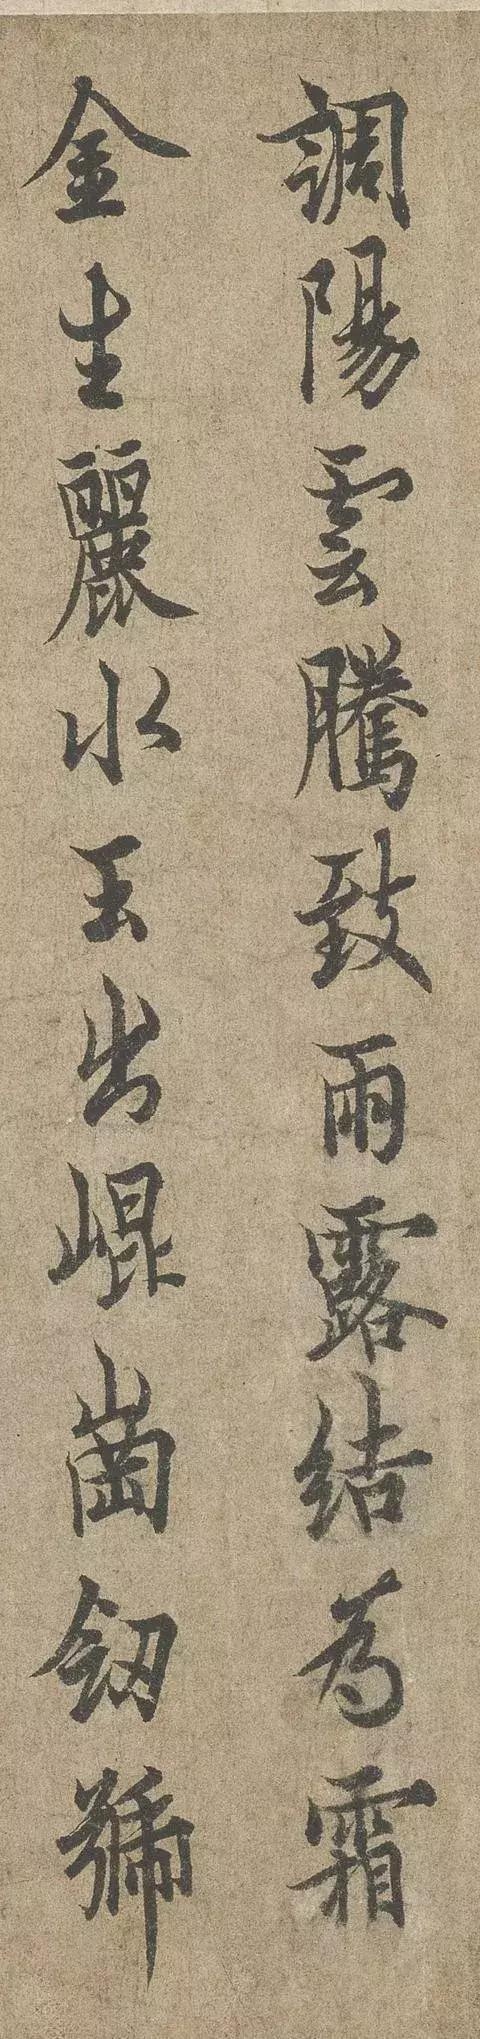 調陽雲騰致雨露結為霜
金生麗水玉出崐崗釼號